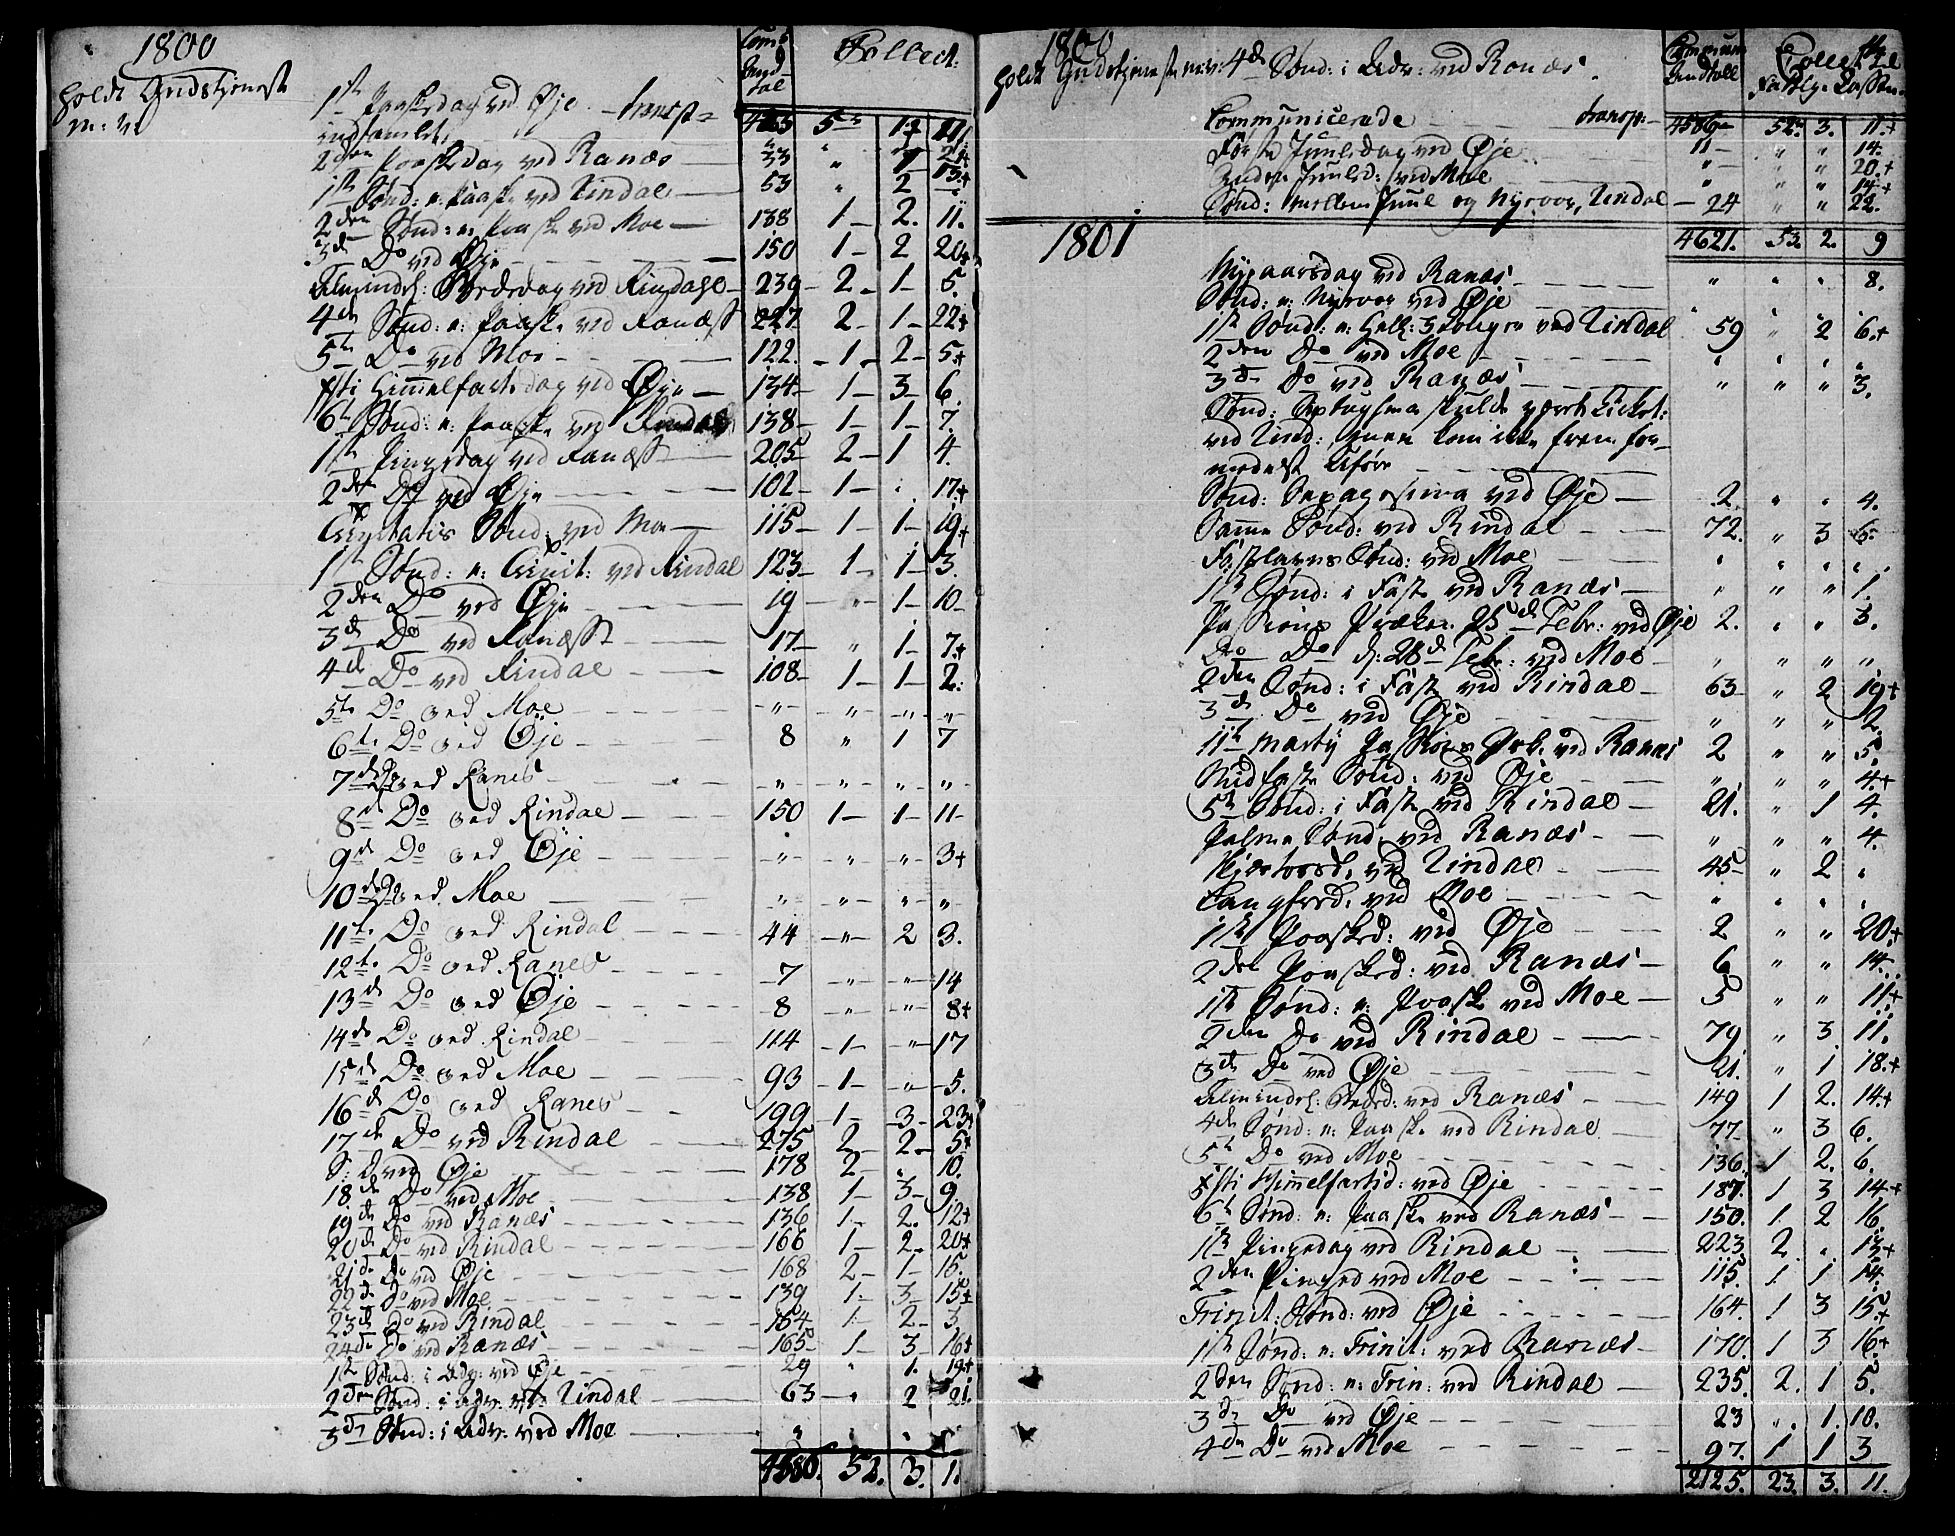 1800
Holdt Gudstjeneste
m. v.
Comm
Andtal
Collect:
1ste Paaskedag ved Øje - transp
indsamlet
2den Paaskedag ved Ranæs — 33 " 1 21+
1ste Sønd: e: Paaske ved Rindal — 53 " 2 13+
2den Sønd: e: Paaske ved Moe — 138 1 2. 11.
3de Do ved Øje — 150 1 2 20+
Almindel: Bededag ved Rindahl — 239 2 1 5.
4de Sønd: e: Paaske ved Ranæss 227 2 1 22+
5te Do ved Moe — 122. 1 2 5+
Xsti Himmelfartsdag ved Øje — 134 1 3 6.
6te Sønd: e: Paaske ved Rindal 138 1 1 7.
1ste Pingsdag ved Ranæss — 205 2 1 4.
2den Do ved Øje — 102 1 . 17+
Trinitatis Sønd: ved Moe — 115 1 1 19+
1ste Sønd: e: Trinit: ved Rindal 123 1 1 3.
2den Do ved Øje — 19 " 1 10
3de Do ved Ranæss — 17 " 1 7+
4de Do ved Rindal — 108 1 1 2.
5te Do ved Moe — " " " "
6te Do ved Øje — 8 " 1 7
7de Do ved Ranes — " " " "
8de Do ved Rindal — 150 1 1 11
9de Do ved Øje — " " " 3+
10de Do ved Moe — " " " "
11te Do ved Rindal — 44 " 2 3.
12te Do ved Ranes — 7 " " 14
13de Do ved Øje — 8 " " 8+
14de Do ved Rindal — 114 1 " 17
15de Do ved Moe — 93 1 " 5.
16de Do ved Ranes — 199 1 3 23+
17de Do ved Rindal — 275 2 2 5+
S: D: ved Øje — 178 2 . 10.
18de Do ved Moe — 138 1 3 9.
19de Do ved Ranæs — 136 1 2. 12+
20de Do ved Rindal — 166 1 2 20+
21de Do ved Øje — 168 2 1 15.
22de Do ved Moe — 139 1 3 15+
23de Do ved Rindal — 164 1 2 3
24de Do ved Ranæs — 165 1 3 16+
1ste Sønd: i Adv: ved Øje — 29 " 1. 19+
2den Sønd: i Adv: ved Rindal — 63 . 2 21.
3de Sønd: i Adv: ved Moe — " . . .
4586. 52. 3. 1.
1800
Holdt Gudstjeneste m: v: 4de Sønd: i Adv: ved Ranæs.
Communi
Andtall
Collect
Communicerede — transp: 4586 52. 3. 11+
Første Juuledag ved Øje — 11 " " 14.
Anden Juuled: ved Moe — " " " 20+
" " " 14+
Sønd: mellem Juul og Nyeaar, Rindal — 24 " " 22.
4621. 53. 2. 9
1801
Nyaarsdag ved Ranæs — " . " 8.
Sønd: e: Nyeaar ved Øje
1ste Sønd: e: Hell: 3 Konger ved Rindal 59 " 2 6+
2den Do ved Moe — " " " "
3de Do ved Ranæs — " " " 3.
Sønd: Septuagesima skulde været holdet:
ved Rind: men kom ikke frem for-
medelst Uføre
Sønd: Sexagesima ved Øje — 2. " . 4.
Samme Sønd: ved Rindal — 72. " 3 6.
Fastelavns Sønd: ved Moe — . . . .
1ste Sønd: i Faste ved Ranæs — " " " 1.
Passions Præken 25de Febr: ved Øje 2. " " 3.
Do Do d: 28de Febr: ved Moe — " " " "
2den Sønd: i Faste ved Rindal — 63 " 2 19+
3de Do ved Øje — " " " 2.
11te Martij Passions Præk. ved Ranæs 2 " " 5.
Midfaste Sønd: ved Øje — " " " 4+
5te Sønd: i Faste ved Rindal — 21. " 1 4.
Palme Sønd: ved Ranæs — " " " 4.
Skiertorsd: ved Rindal — 45 " 2 .
Langfred: ved Moe — " . . .
1ste Paasked: ved Øje — 2 " " 20+
2den Paasked: ved Ranæs — 6 " " 14.
1ste Sønd: e: Paaske ved Moe — 5 " " 11+
2den Do ved Rindal — 79 " 3 11.
3de Do ved Øje — 21. " 1 18+
Almindel: Beded: ved Ranæs — 149 1 2. 14+
4de Sønd: e: Paaske ved Rindal — 77 " 3 6.
5te Do ved Moe — 136 1 2. 6.
Xsti Himmelfartsd: ved Øje — 187. 1 3 14+
6te Sønd: e: Paaske ved Ranæs — 150. 1 2 16.
1ste Pingsdag ved Rindal — 223. 2. . 13+
2den Pingsd ved Moe — 115. 1 1 14.
Trinit: Sønd: ved Øje — 164. 1 3 15+
1ste Sønd: e: Trinit: ved Ranæs — 170. 1 3 16+
2den Sønd: e: Trin: ved Rindal — 235. 2. 1 5.
3de Do ved Øje — 23 ". 1. 10.
4de Do ved Moe — 97. 1 1 3
2125. 23. 3. 11.